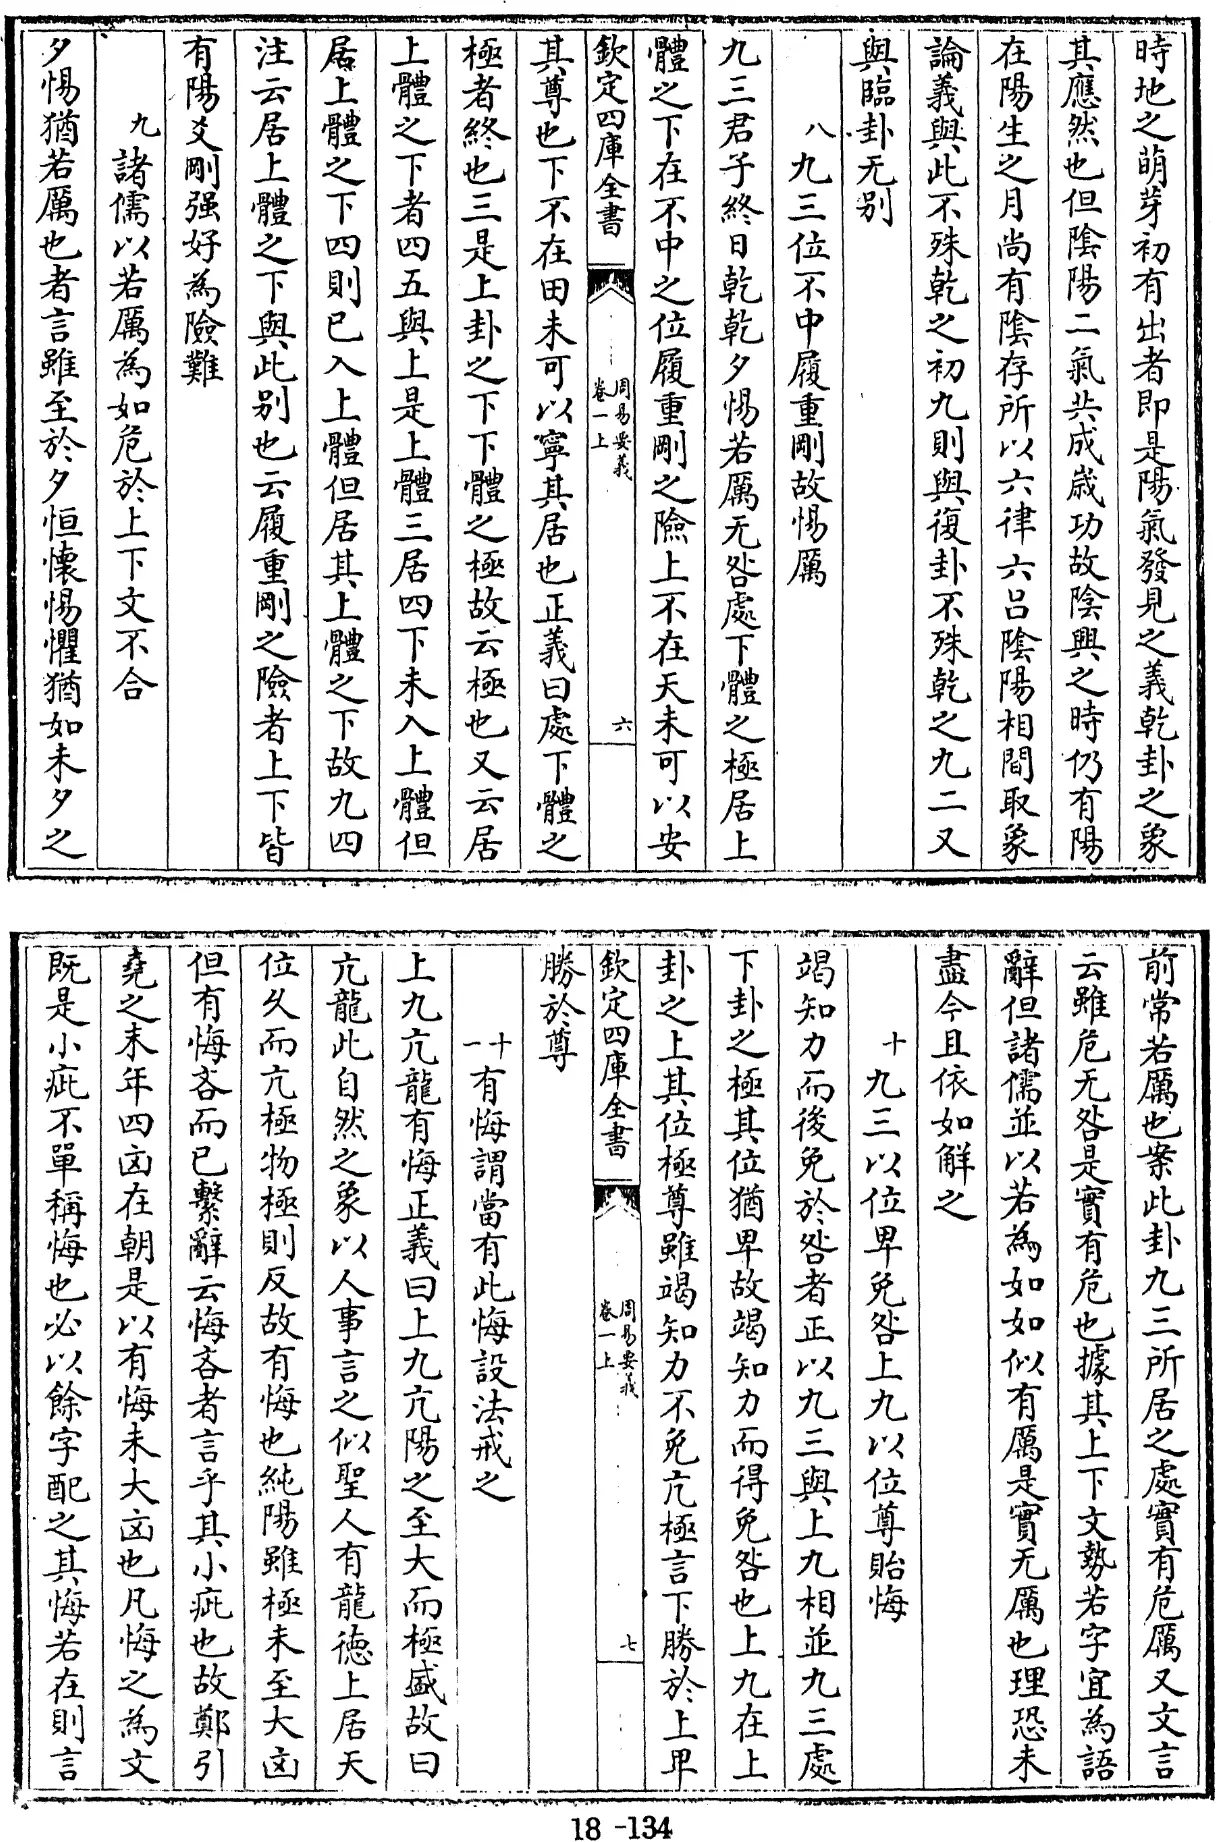 時地之萌芽初有出者即是陽氣發見之義乾卦之象
其應然也但陰陽二氣共成歲功故陰興之時仍有陽
在陽生之月尚有陰存所以六律六呂陰陽相間取象
論義與此不殊乾之初九則與復卦不殊乾之九二又
與臨卦无别
八九三位不中履重剛故惕厲
九三君子終日乾乾夕惕若厲无咎處下體之極居上
體之下在不中之位履重剛之險上不在天未可以安
欽定四庫全書
周易要義
卷一上
六
其尊也下不在田未可以寧其居也正義曰處下體之
極者終也三是上卦之下下體之極故云極也又云居
上體之下者四五與上是上體三居四下未入上體但
居上體之下四則已入上體但居其上體之下故九四
注云居上體之下與此别也云履重剛之險者上下皆
有陽爻剛强好為險難
九諸儒以若厲為如危於上下文不合
夕惕猶若厲也者言雖至於夕恒懷惕懼猶如未夕之
前常若厲也案此卦九三所居之處實有危厲又文言
云雖危无咎是實有危也據其上下文勢若字宜為語
辭但諸儒並以若為如如似有厲是實无厲也理恐未
盡今且依如解之
十九三以位卑免咎上九以位尊貽悔
竭知力而後免於咎者正以九三與上九相並九三處
下卦之極其位猶卑故竭知力而得免咎也上九在上
卦之上其位極尊雖竭知力不免亢極言下勝於上卑
欽定四庫全書
周易要義
卷一上
七
勝於尊
十一有悔謂當有此悔設法戒之
上九亢龍有悔正義曰上九亢陽之至大而極盛故曰
亢龍此自然之象以人事言之似聖人有龍德上居天
位久而亢極物極則反故有悔也純陽雖極未至大凶
但有悔吝而已繫辭云悔吝者言乎其小疵也故鄭引
堯之末年四凶在朝是以有悔未大凶也凡悔之為文
既是小疵不單稱悔也必以餘字配之其悔若在則言
18-134